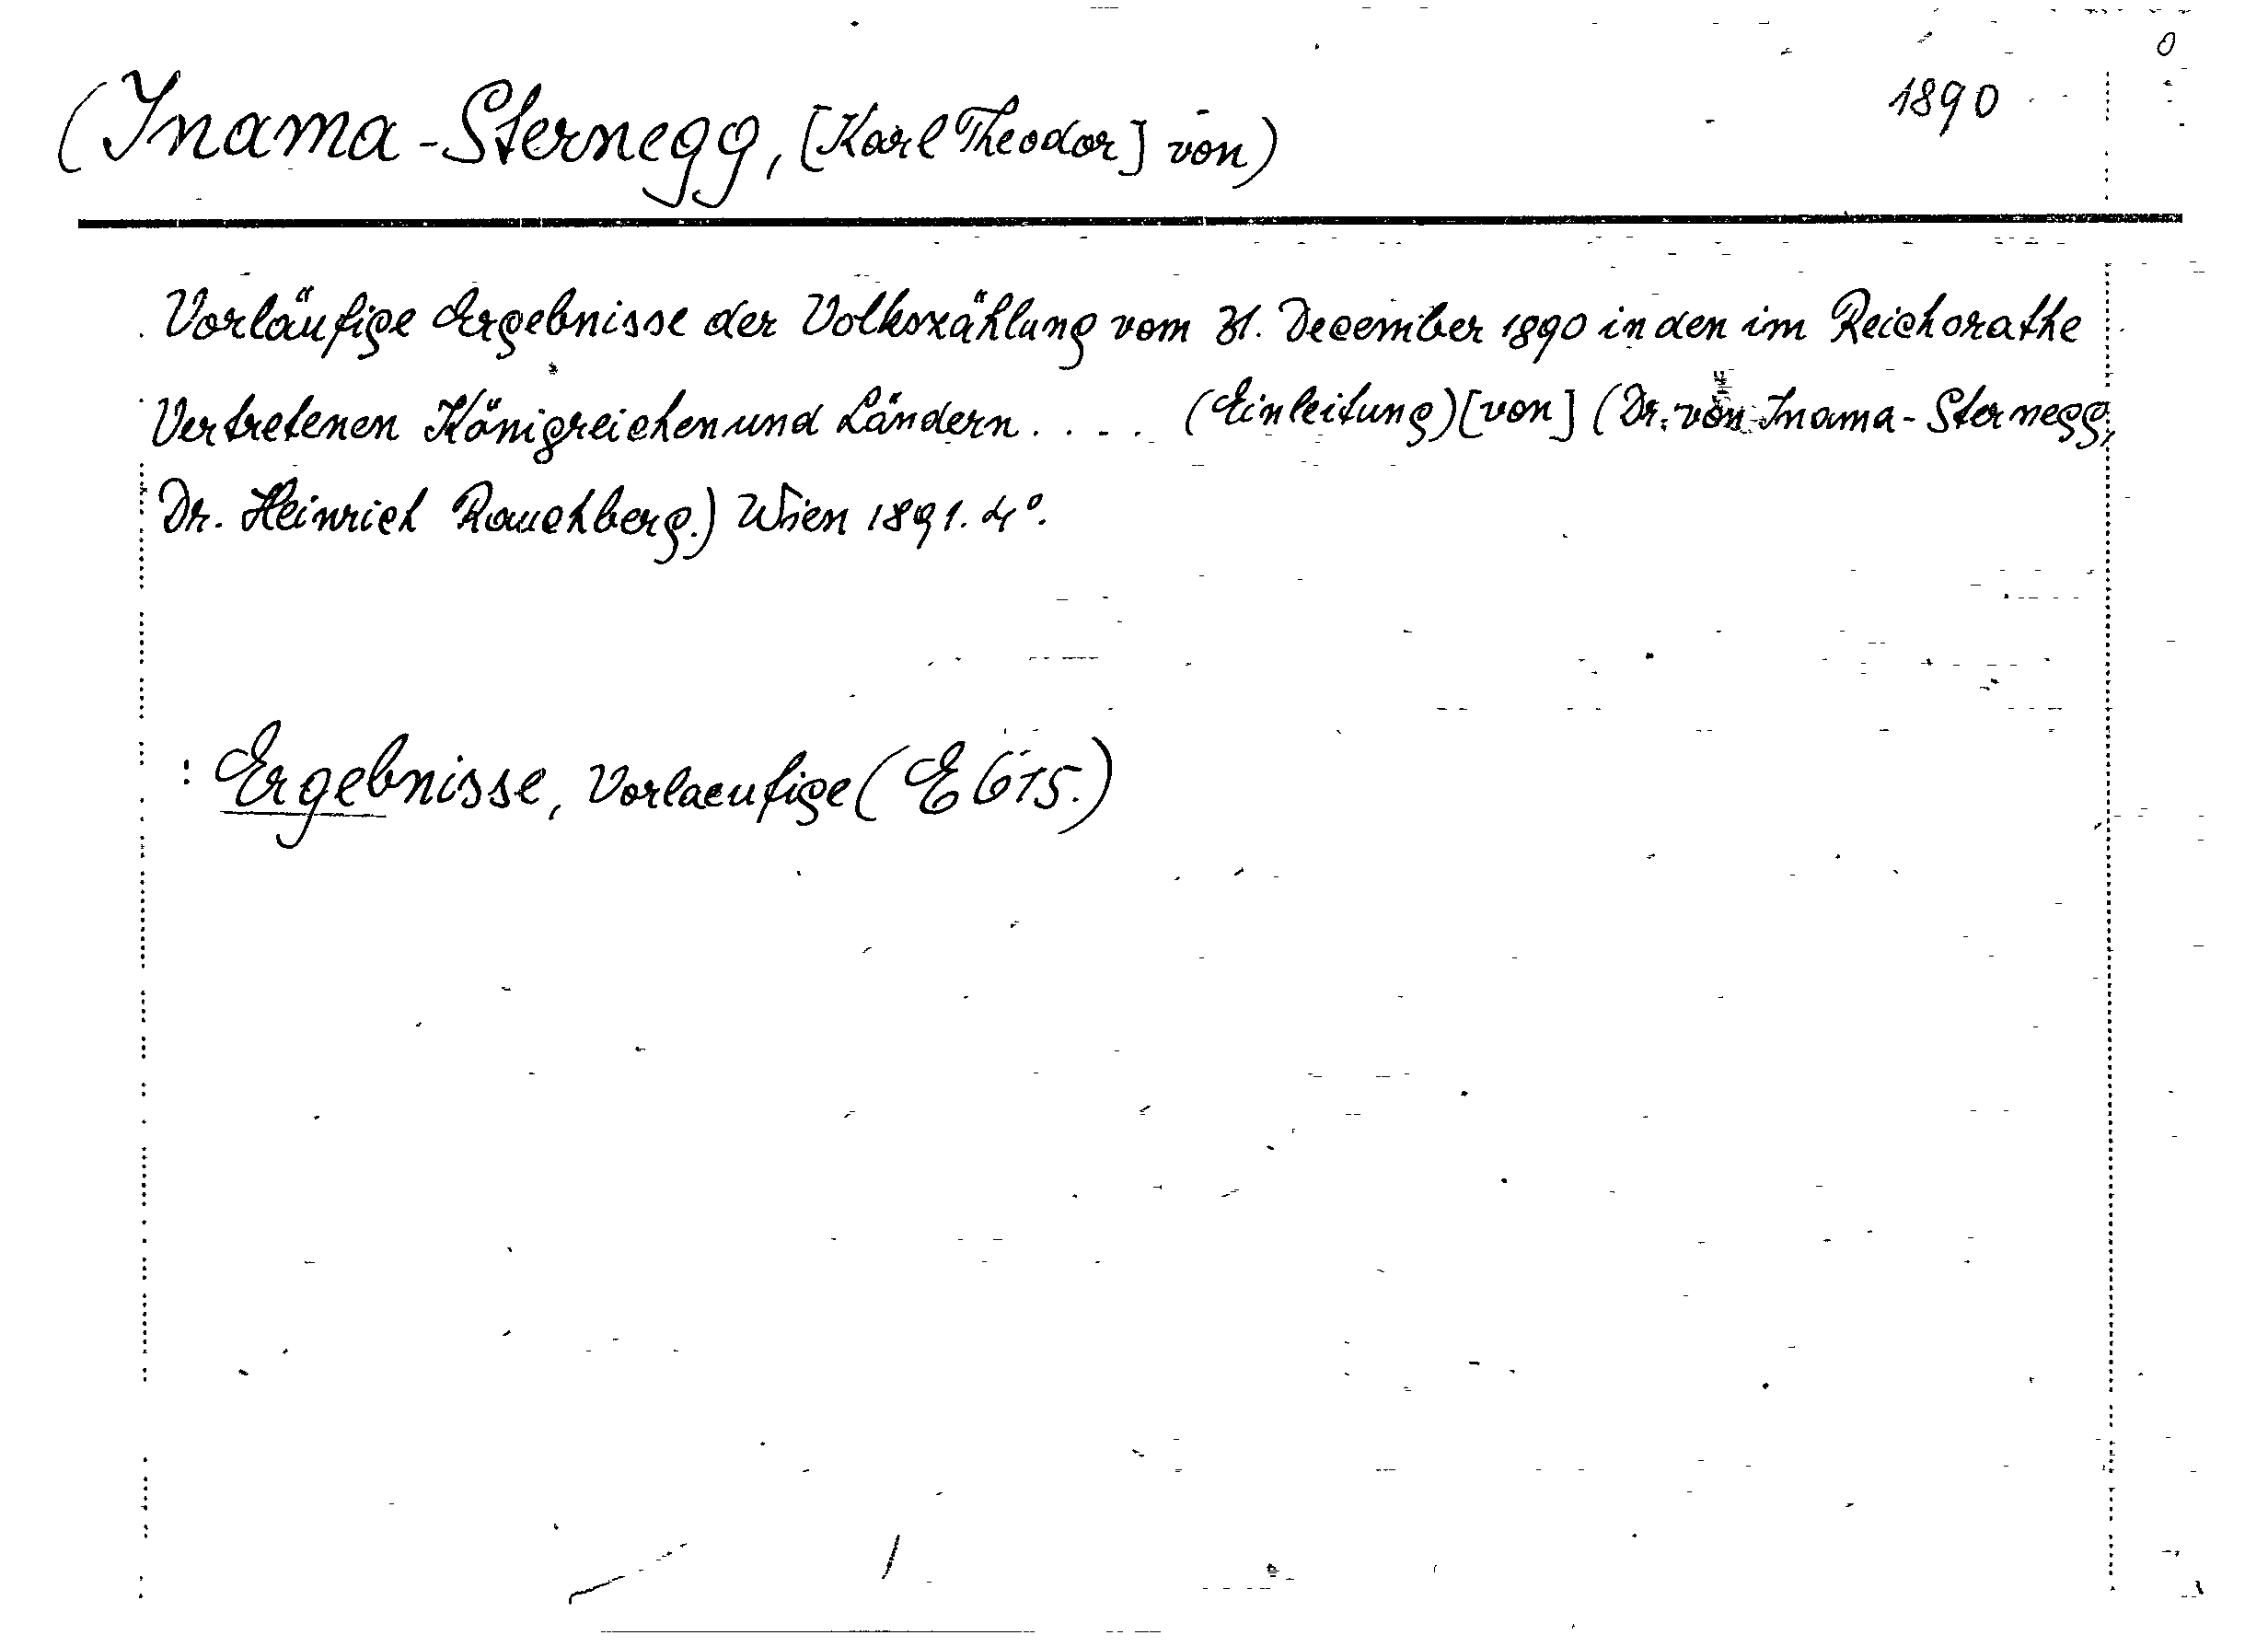 (Inama-Sternegg, [Karl Theodor] von)
1890
Vorläufige Ergebnisse der Volkszählung vom 31. December 1890 in den im Reichsrathe
Vertretenen Königreichen und Ländern. . . . . (Einleitung) [von] (Dr. von Inama-Sternegg,
Dr. Heinrich Rauchberg.) Wien 1891. 4°.
: Ergebnisse, Vorlaeufige (E 615.)